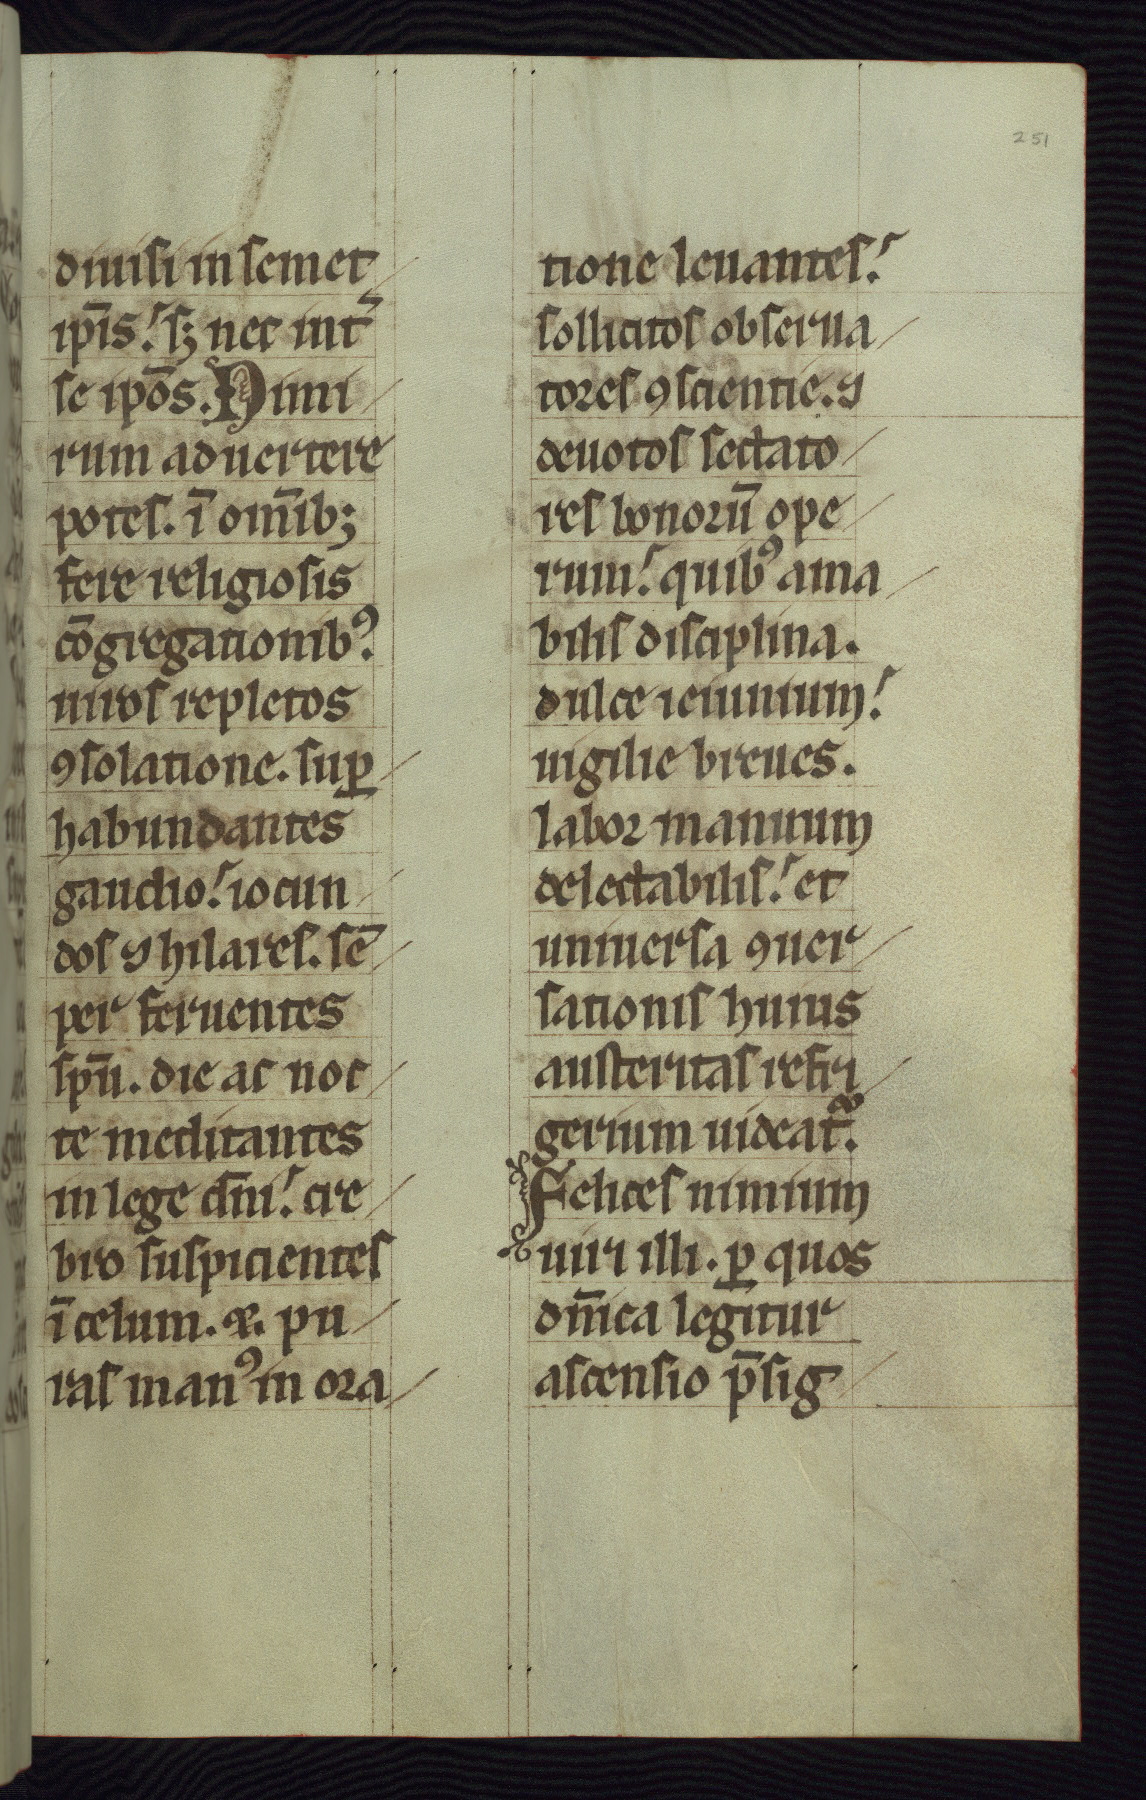 251
diuisi in semet
ip̄is. sꝫ nec int᷑
se ip̄os. Nimi
rum aduertere
potes. ī om̄ibꝫ
fere religiosis
cōgregationibꝰ
uiros repletos
ꝯsolatione. suꝑ
habundantes
gaudio. iocun
dos ⁊ hilares. sē
per feruentes
sp̄u. die ac noc
te meditantes
in lege dn̄i. cre
bro suspicientes
ī celum. ⁊. pu
ras manꝰ in ora
tione leuantes.
sollicitos obserua
tores ꝯscientie. ⁊
deuotos sectato
res bonorū ope
rum. quibꝰ ama
bilis disciplina.
dulce ieiunium.
uigilie breues.
labor manuum
delectabilis. et
uniuersa ꝯuer
sationis huius
austeritas refri
gerium uideat᷑.
Felices nimium
uiri illi. ꝑ quos
dn̄ica legitur
ascensio p̄sig